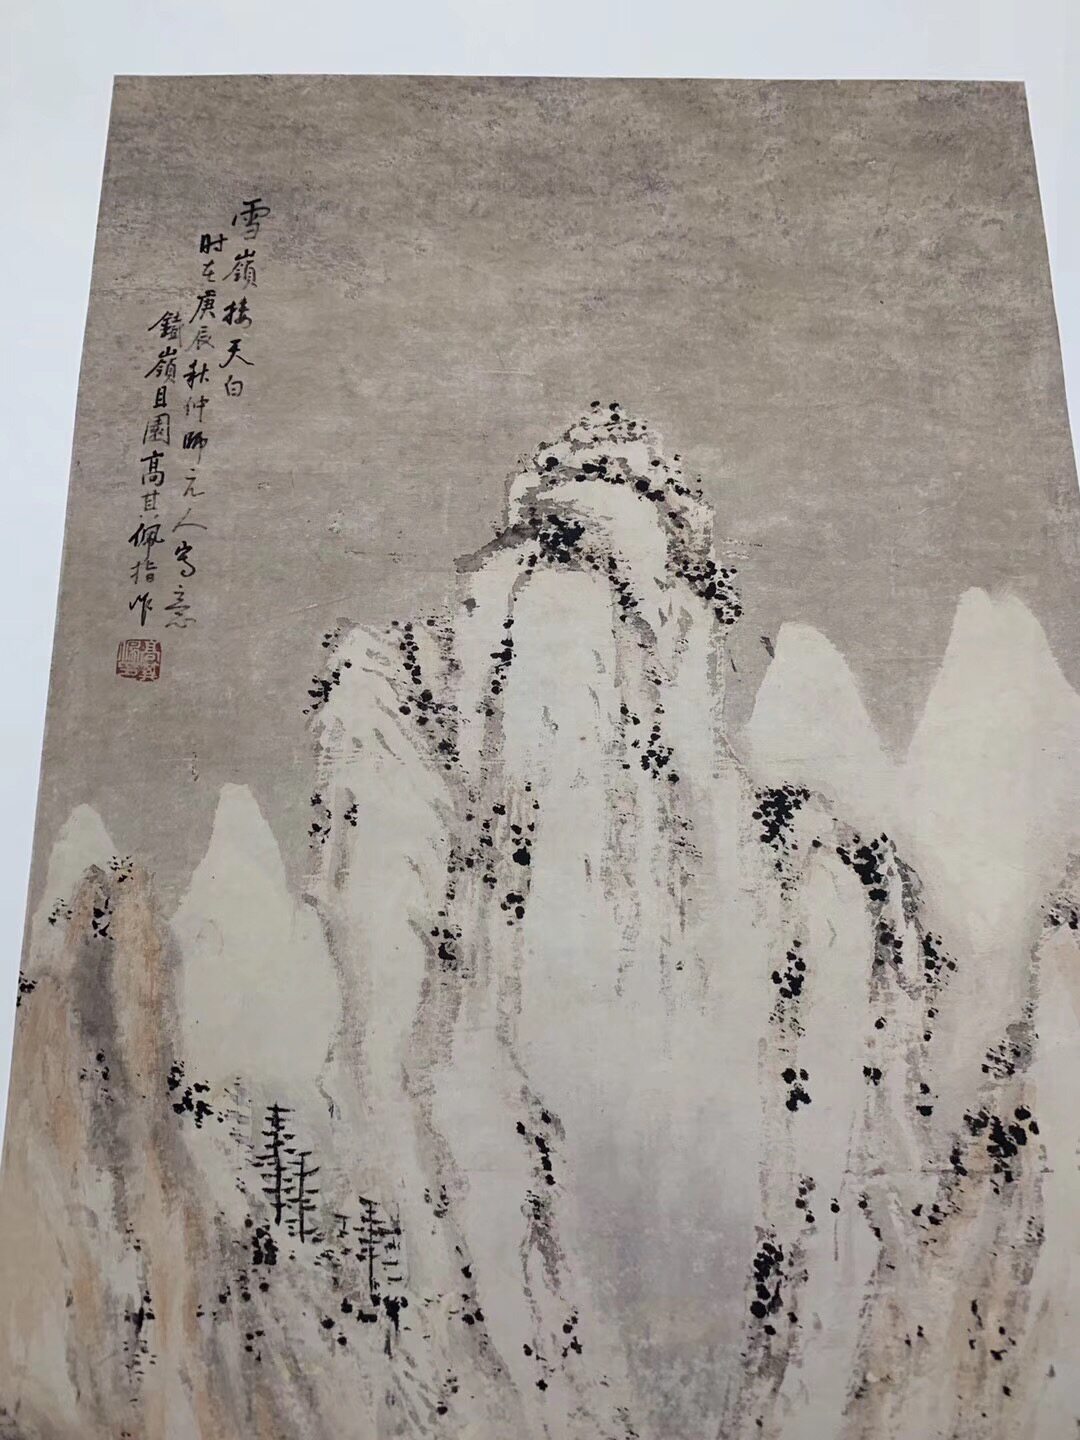 雪嶺接天白
时在庚辰秋仲師元人寫意
鐵嶺且園高其佩指作